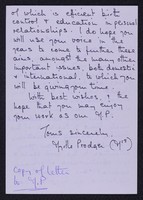 of which is efficient birth
control & education in personal
relationships. I do hope you
will use your voice in the
years to come to further these
aims, amongst the many other
important issues, both domestic
& international, to which you
will be giving your time.
With best wishes, & the
hope that you may enjoy
your work as our M.P.
Yours sincerely,
(Mrs)
Copy of letter
to M.P.